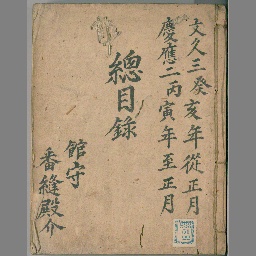 文久三癸亥年從正月
慶應二丙寅年至正月
總目錄
館守
番縫殿介